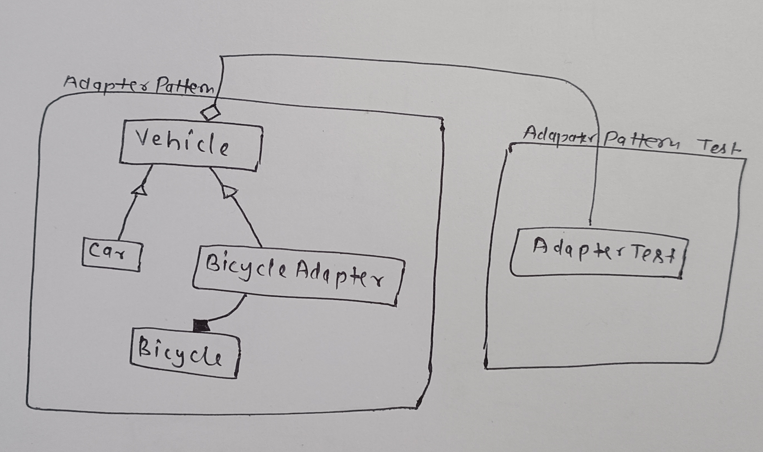 Adapter Pattern
Vehicle
Car
Bicycle Adapter
Bicycle
Adapater Pattern Test
Adapter Test